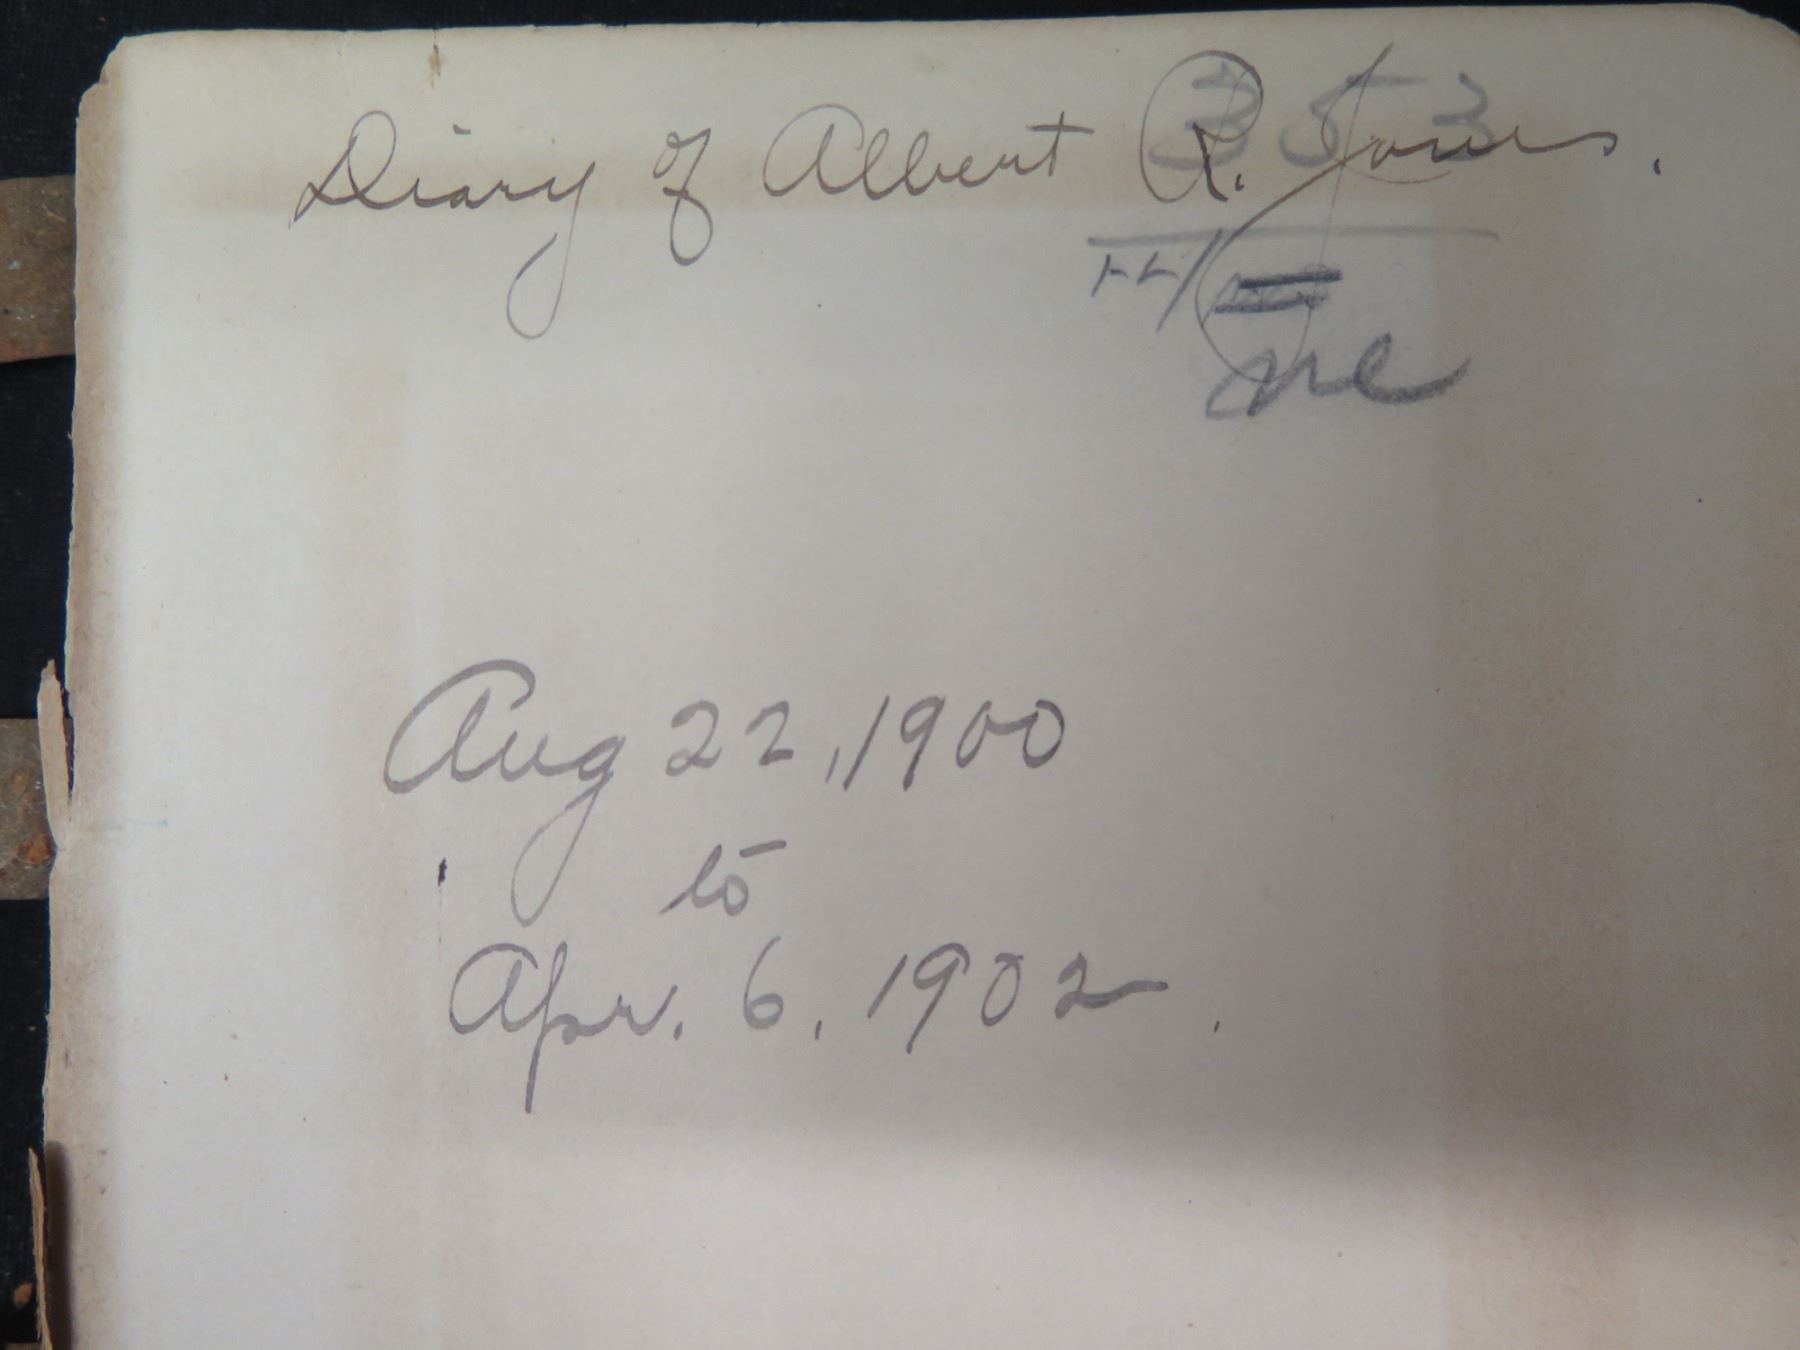 Diary of Albert R. Jones.
353
Aug 22, 1900
to
Apr. 6, 1902.